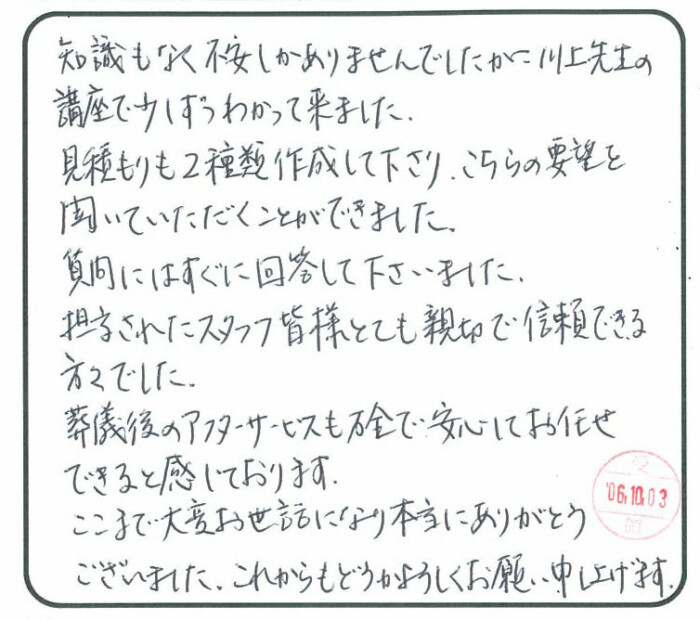 知識もなく不安しかありませんでしたが、川上先生の
講座で少しずつわかって来ました。
見積もりも2種類作成して下さり、こちらの要望を
聞いていただくことができました。
質問にはすぐに回答して下さいました。
担当されたスタッフ皆様とても親切で信頼できる
方々でした。
葬儀後のアフターサービスも万全で安心してお任せ
できると感じております。
ここまで大変お世話になり本当にありがとう
ございました。これからもどうかよろしくお願い申し上げます。
受
'06.10.03
領